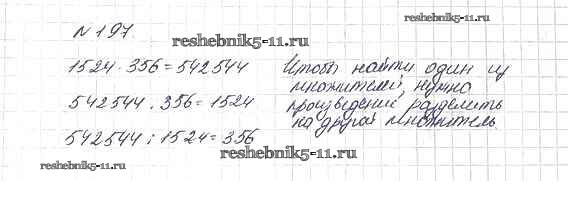 reshebnik5-11.ru
N 197.
reshebnik5-11.ru
1524 · 356 = 542544
542544 : 356 = 1524
542544 : 1524 = 356
Чтобы найти один из
множителей, нужно
произведение разделить
на другой множитель.
reshebnik5-11.ru
reshebnik5-11.ru